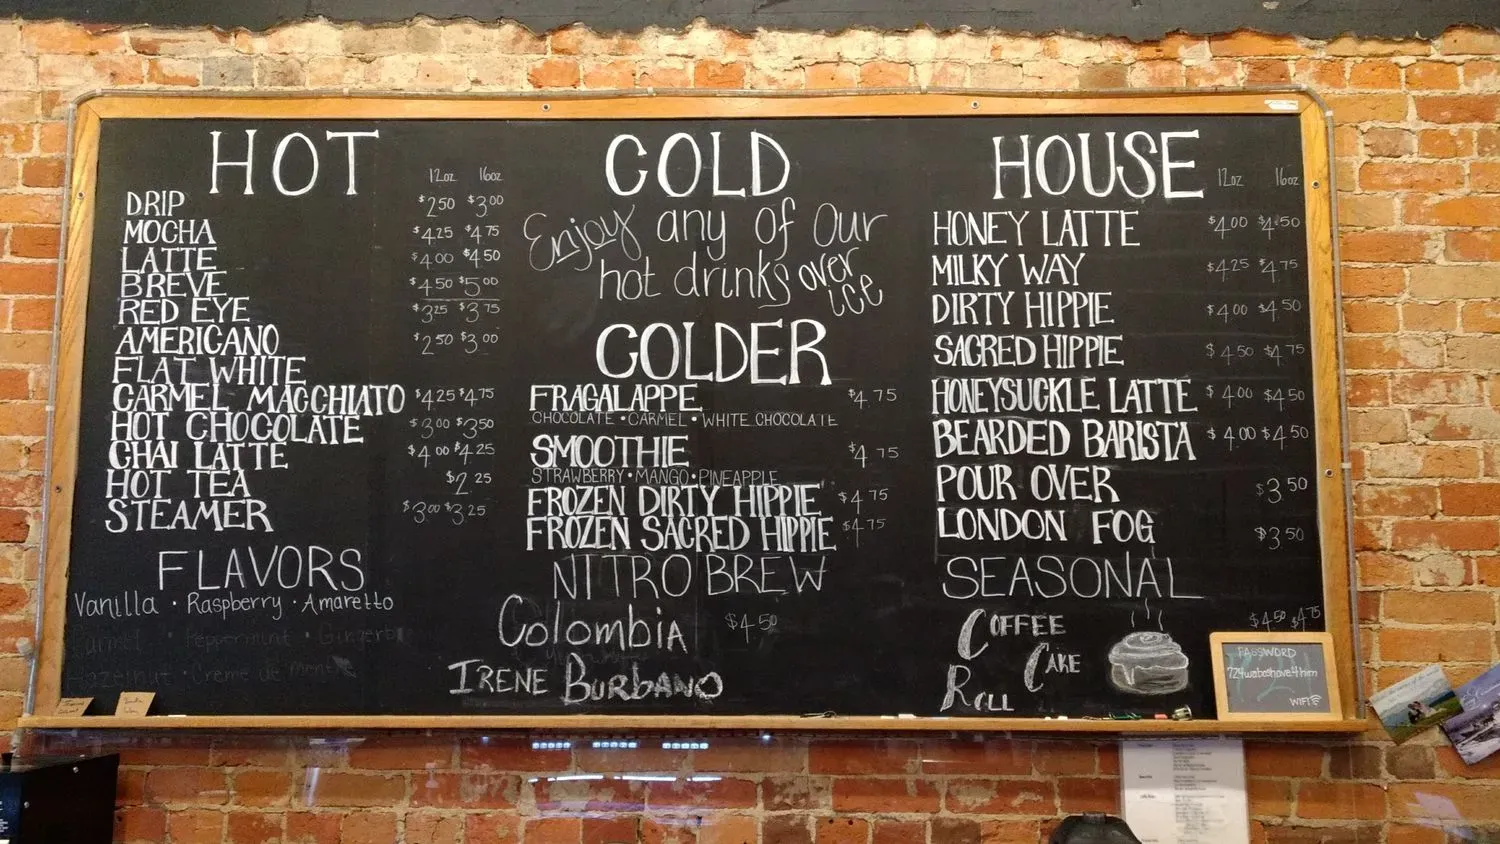 HOT
12oz 16oz
DRIP $2.50 $3.00
MOCHA $4.25 $4.75
LATTE $4.00 $4.50
BREVE $4.50 $5.00
RED EYE $3.25 $3.75
AMERICANO $2.50 $3.00
FLAT WHITE
CARMEL MACCHIATO $4.25 $4.75
HOT CHOCOLATE $3.00 $3.50
CHAI LATTE $4.00 $4.25
HOT TEA $2.25
STEAMER $3.00 $3.25
FLAVORS
Vanilla • Raspberry • Amaretto
Carmel • Peppermint •
Hazelnut • Creme de Menthe
COLD
Enjoy any of Our
hot drinks over
ice
COLDER
FRAGALAPPE $4.75
CHOCOLATE • CARMEL • WHITE CHOCOLATE
SMOOTHIE $4.75
STRAWBERRY • MANGO • PINEAPPLE
FROZEN DIRTY HIPPIE $4.75
FROZEN SACRED HIPPIE $4.75
NITRO BREW
Colombia $4.50
IRENE BURBANO
HOUSE
12oz 16oz
HONEY LATTE $4.00 $4.50
MILKY WAY $4.25 $4.75
DIRTY HIPPIE $4.00 $4.50
SACRED HIPPIE $4.50 $4.75
HONEYSUCKLE LATTE $4.00 $4.50
BEARDED BARISTA $4.00 $4.50
POUR OVER $3.50
LONDON FOG $3.50
SEASONAL
$4.50 $4.75
COFFEE
CAKE
ROLL
PASSWORD
WIFI